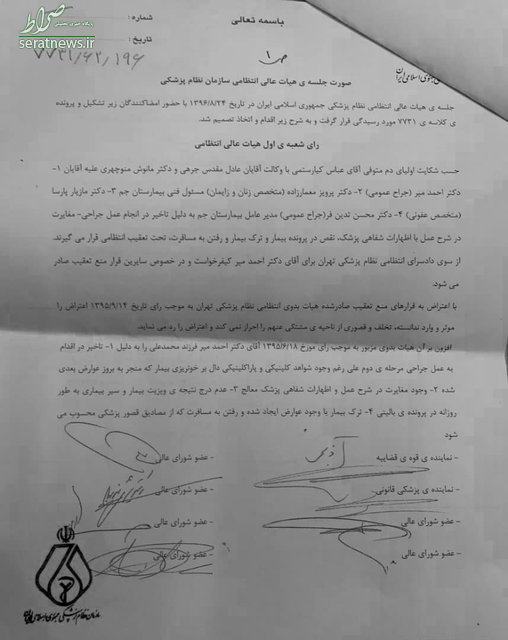 باسمه تعالی
شماره :
تاریخ :
صراط
پایگاه خبری تحلیلی
seratnews.ir
۷۷۳۱/۶۲/۱۹۶
ص ۱
جمهوری اسلامی ایران
صورت جلسه ی هیات عالی انتظامی سازمان نظام پزشکی
جلسه ی هیات عالی انتظامی نظام پزشکی جمهوری اسلامی ایران در تاریخ ۱۳۹۶/۸/۲۴ با حضور امضاکنندگان زیر تشکیل و پرونده
ی کلاسه ی ۷۷۳۱ مورد رسیدگی قرار گرفت و به شرح زیر اقدام و اتخاذ تصمیم شد.
رای شعبه ی اول هیات عالی انتظامی
حسب شکایت اولیای دم متوفی آقای عباس کیارستمی با وکالت آقایان عادل مقدس جرهی و دکتر مانوش منوچهری علیه آقایان ۱-
دکتر احمد میر (جراح عمومی) ۲- دکتر پرویز معمارزاده (متخصص زنان و زایمان) مسئول فنی بیمارستان جم ۳- دکتر مازیار پارسا
(متخصص عفونی) ۴- دکتر محسن تدین فر(جراح عمومی) مدیر عامل بیمارستان جم به دلیل تاخیر در انجام عمل جراحی- مغایرت
در شرح عمل با اظهارات شفاهی پزشک، نقص در پرونده بیمار و ترک بیمار و رفتن به مسافرت، تحت تعقیب انتظامی قرار می گیرند.
از سوی دادسرای انتظامی نظام پزشکی تهران برای آقای دکتر احمد میر کیفرخواست و در خصوص سایرین قرار منع تعقیب صادر
می شود.
با اعتراض به قرارهای منع تعقیب صادرشده هیات بدوی انتظامی نظام پزشکی تهران به موجب رای تاریخ ۱۳۹۵/۹/۱۴ اعتراض را
موثر و وارد ندانسته، تخلف و قصوری از ناحیه ی مشتکی عنهم را احراز نمی کند و اعتراض را رد می نماید.
افزون بر آن هیات بدوی مزبور به موجب رای مورخ ۱۳۹۵/۶/۱۸ آقای دکتر احمد میر فرزند محمدعلی را به دلیل ۱- تاخیر در اقدام
به عمل جراحی مرحله ی دوم علی رغم وجود شواهد کلینیکی و پاراکلینیکی دال بر خونریزی بیمار که منجر به بروز عوارض بعدی
شده ۲- وجود مغایرت در شرح عمل و اظهارات شفاهی پزشک معالج ۳- عدم درج نتیجه ی ویزیت بیمار و سیر بیماری به طور
روزانه در پرونده ی بالینی ۴- ترک بیمار با وجود عوارض ایجاد شده و رفتن به مسافرت که از مصادیق قصور پزشکی محسوب می
شود
- نماینده ی قوه ی قضاییه
- عضو شورای عالی
- نماینده ی پزشکی قانونی
- عضو شورای عالی
- عضو شورای عالی
- عضو شورای عالی
- عضو شورای عالی
- عضو شورای عالی
سازمان نظام پزشکی جمهوری اسلامی ایران